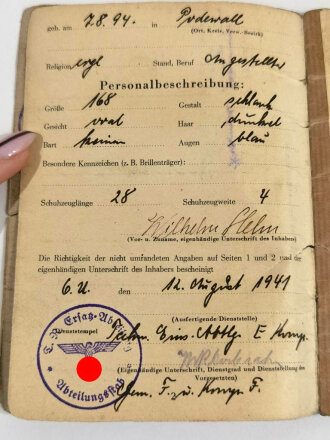 geb. am 7.8.94. in Podewall
(Ort, Kreis, Verw.-Bezirk)
Religion evgl Stand, Beruf Angestellter
Personalbeschreibung:
Größe 168 Gestalt schlank
Gesicht oval Haar dunkel
Bart keinen Augen blau
Besondere Kennzeichen (z. B. Brillenträger):
Schuhzeuglänge 28 Schuhzeugweite 4
Wilhelm
(Vor- u. Zuname, eigenhändige Unterschrift des Inhabers)
Die Richtigkeit der nicht umrandeten Angaben auf Seiten 1 und 2 und der
eigenhändigen Unterschrift des Inhabers bescheinigt
O.U. den 12. August 1941
(Ausfertigende Dienststelle)
Dienststempel
(Eigenhändige Unterschrift, Dienstgrad und Dienststellung des
Vorgesetzten)
Abteilungsstab